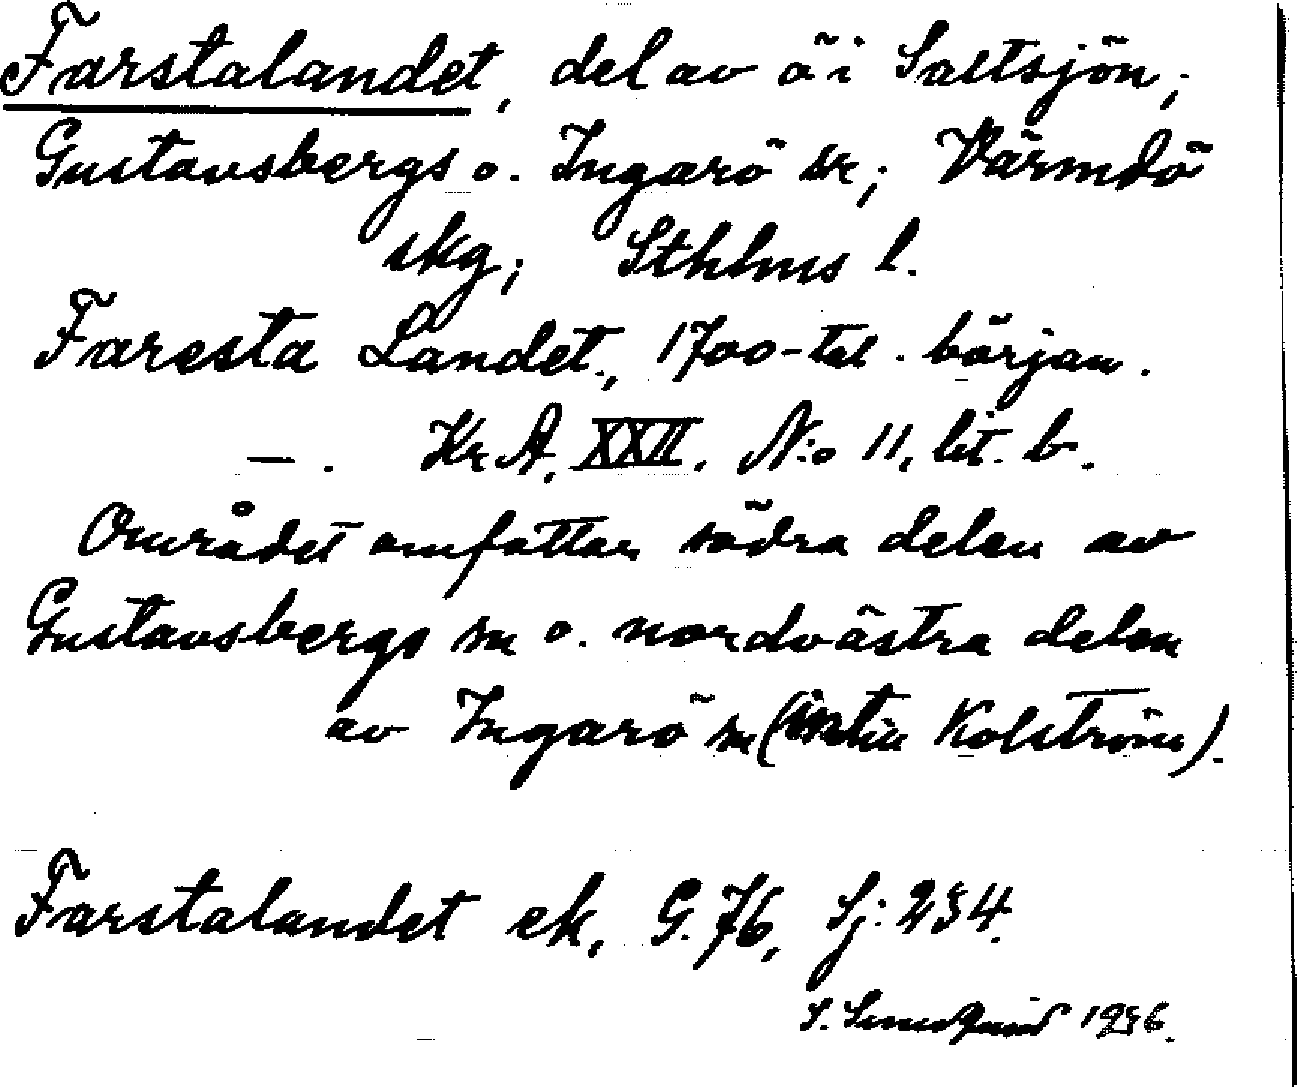 Farstalandet, del av ö i Saltsjön;
Gustavsbergs o. Ingarö sk; Värmdö
skg; Sthlms l.
Faresta Landet., 1700-tal. början.
—. Kr A. XXII. N:o 11, lit. b.
Området omfattar södra delen av
Gustavsbergs sn o. nordvästra delen
av Ingarö sn (intill Kolström).
Farstalandet ek, G. 76, Sj: 234.
S. 1936.